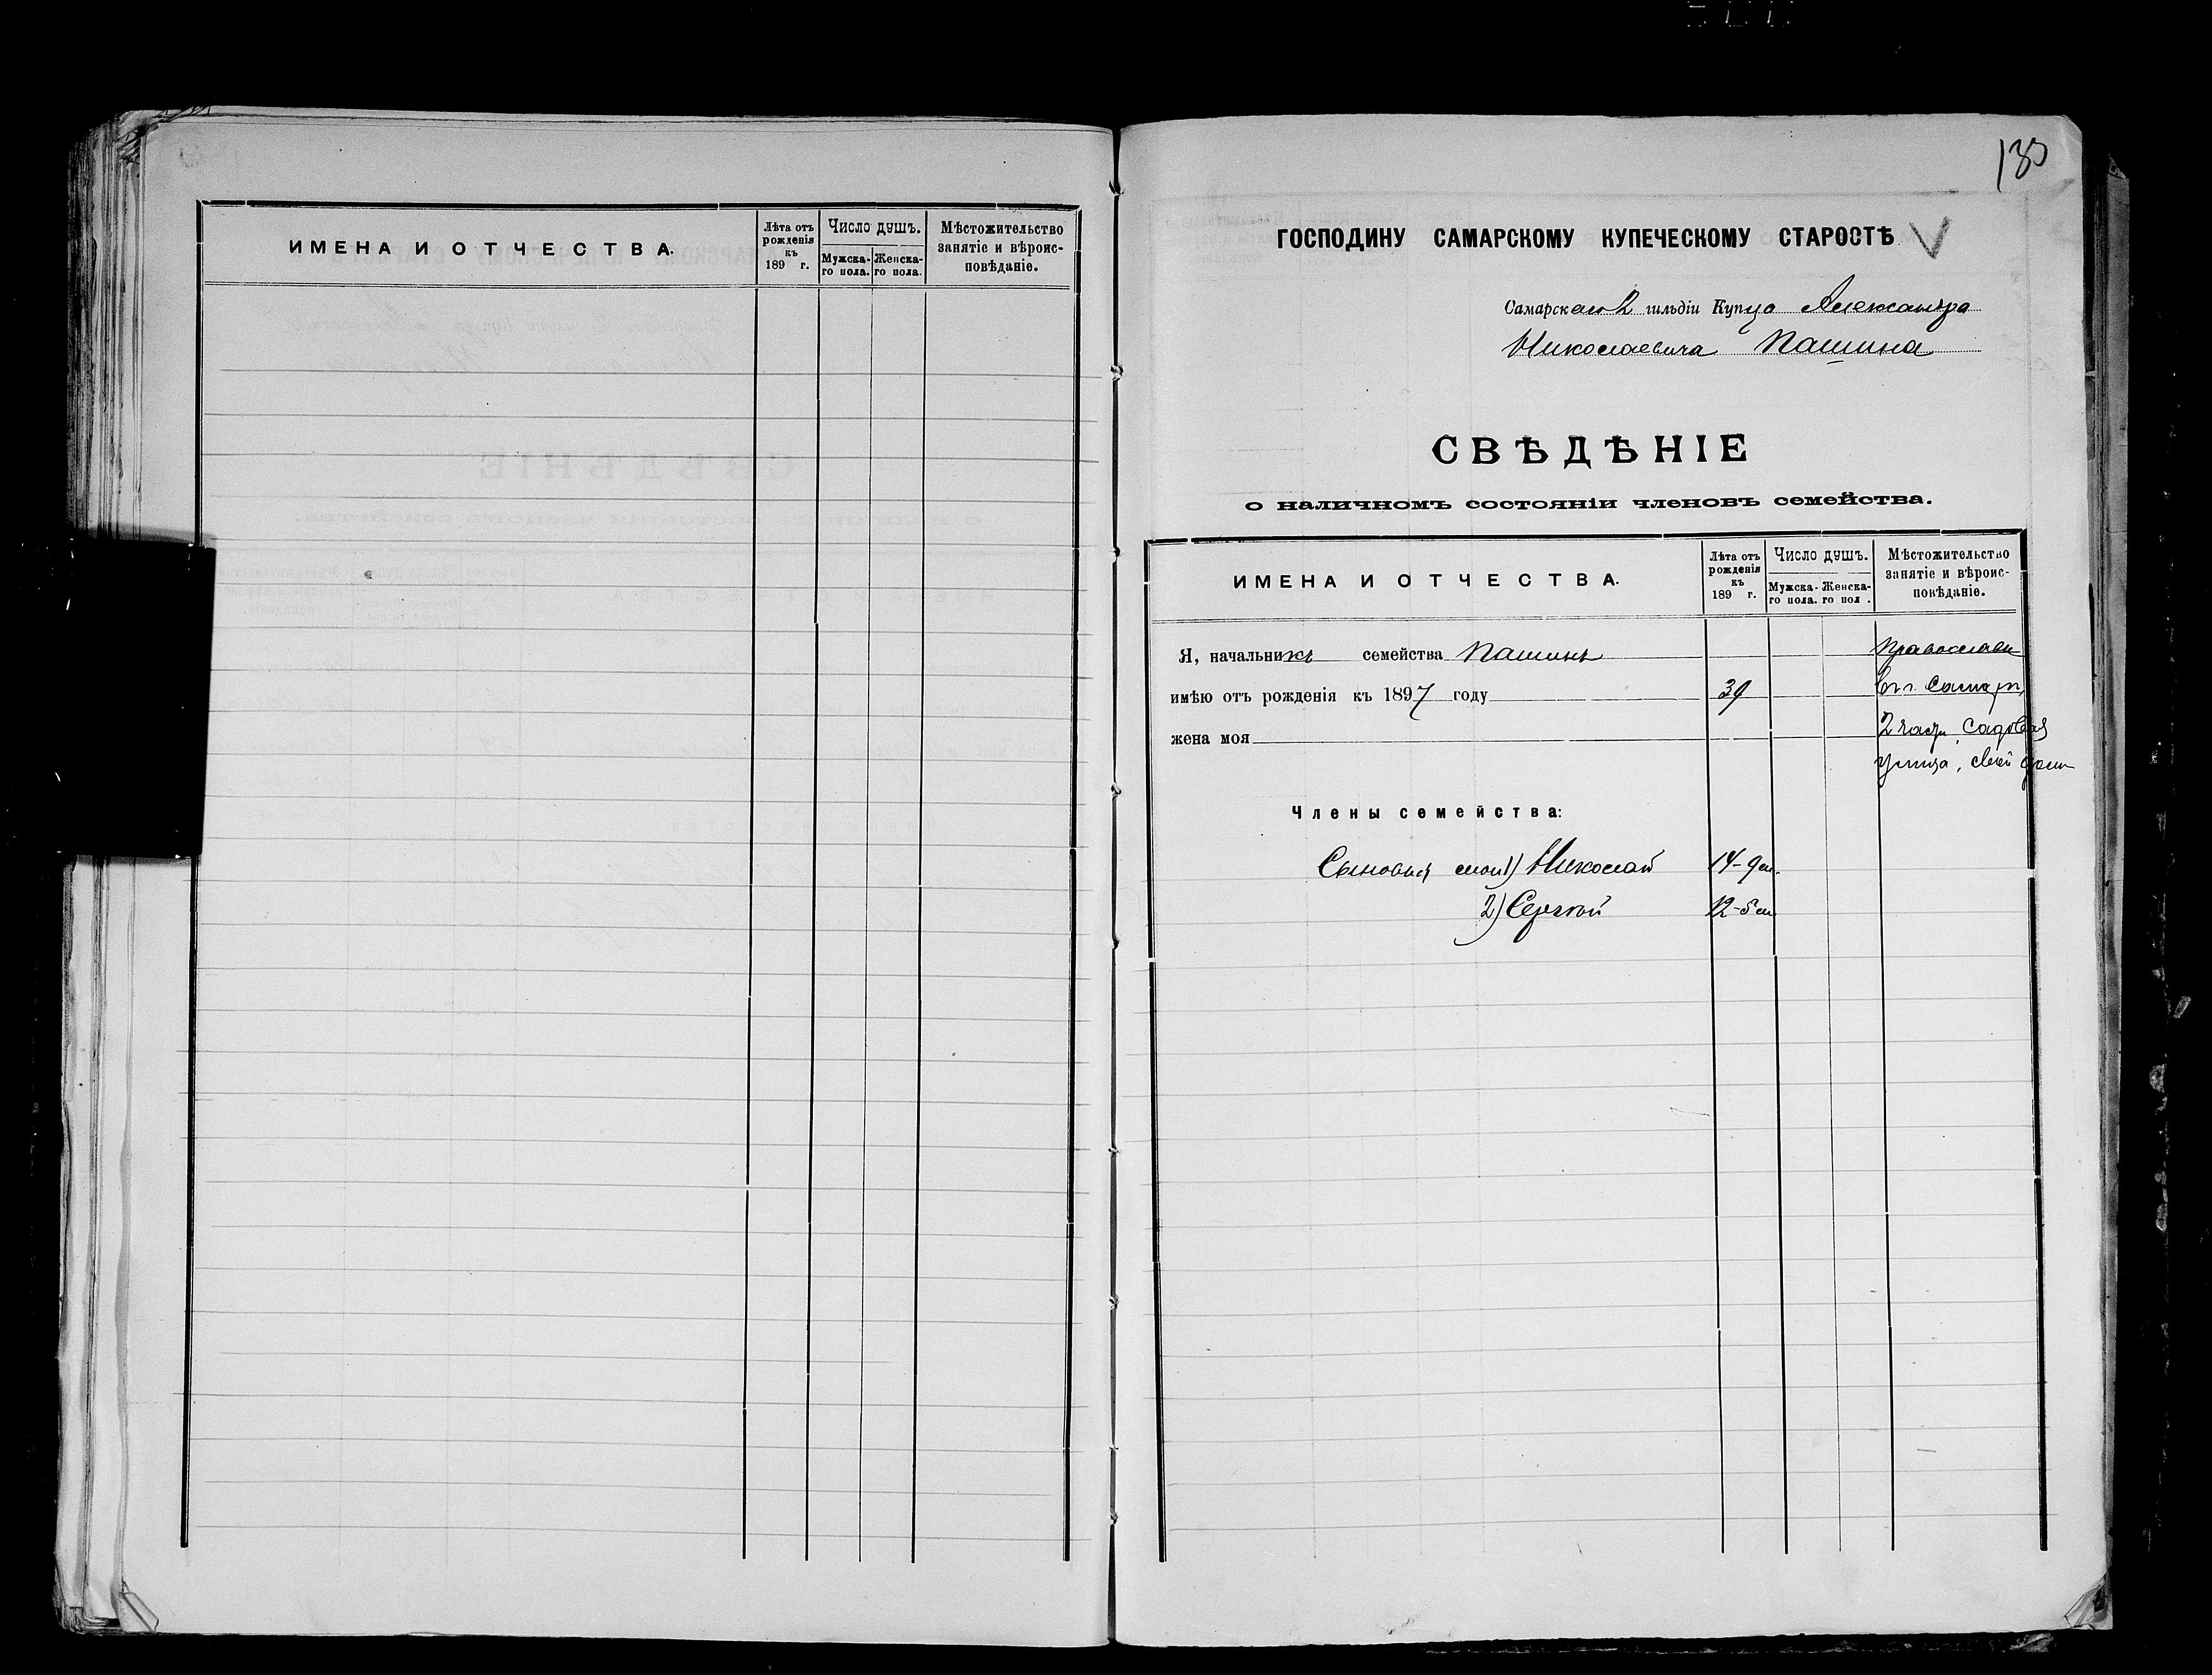 ИМЕНА И ОТЧЕСТВА.
Лѣта отъ рожденія къ 189 г.
Число душъ.
Мужска-го пола.
Женска-го пола.
Мѣстожительство занятіе и вѣроис-повѣданіе.
ГОСПОДИНУ САМАРСКОМУ КУПЕЧЕСКОМУ СТАРОСТѢ
Самарскаго 2 гильдіи Купца Александра
Николаевича Пашина
СВѢДѢНІЕ
о наличномъ состояніи членовъ семейства.
ИМЕНА И ОТЧЕСТВА.
Лѣта отъ рожденія къ 189 г.
Число душъ.
Мужска-го пола.
Женска-го пол .
Мѣстожительство занятіе и вѣроис-повѣданіе.
Я, начальникъ семейства Пашинъ
Православн
имѣю отъ рожденія къ 1897 году 39
въ г. Самарѣ,
жена моя
2 части, Садовая
улица, свой домъ
Члены семейства:
Сыновья мои 1) Николай 14-9 м.
2) Сергѣй 12-5 м